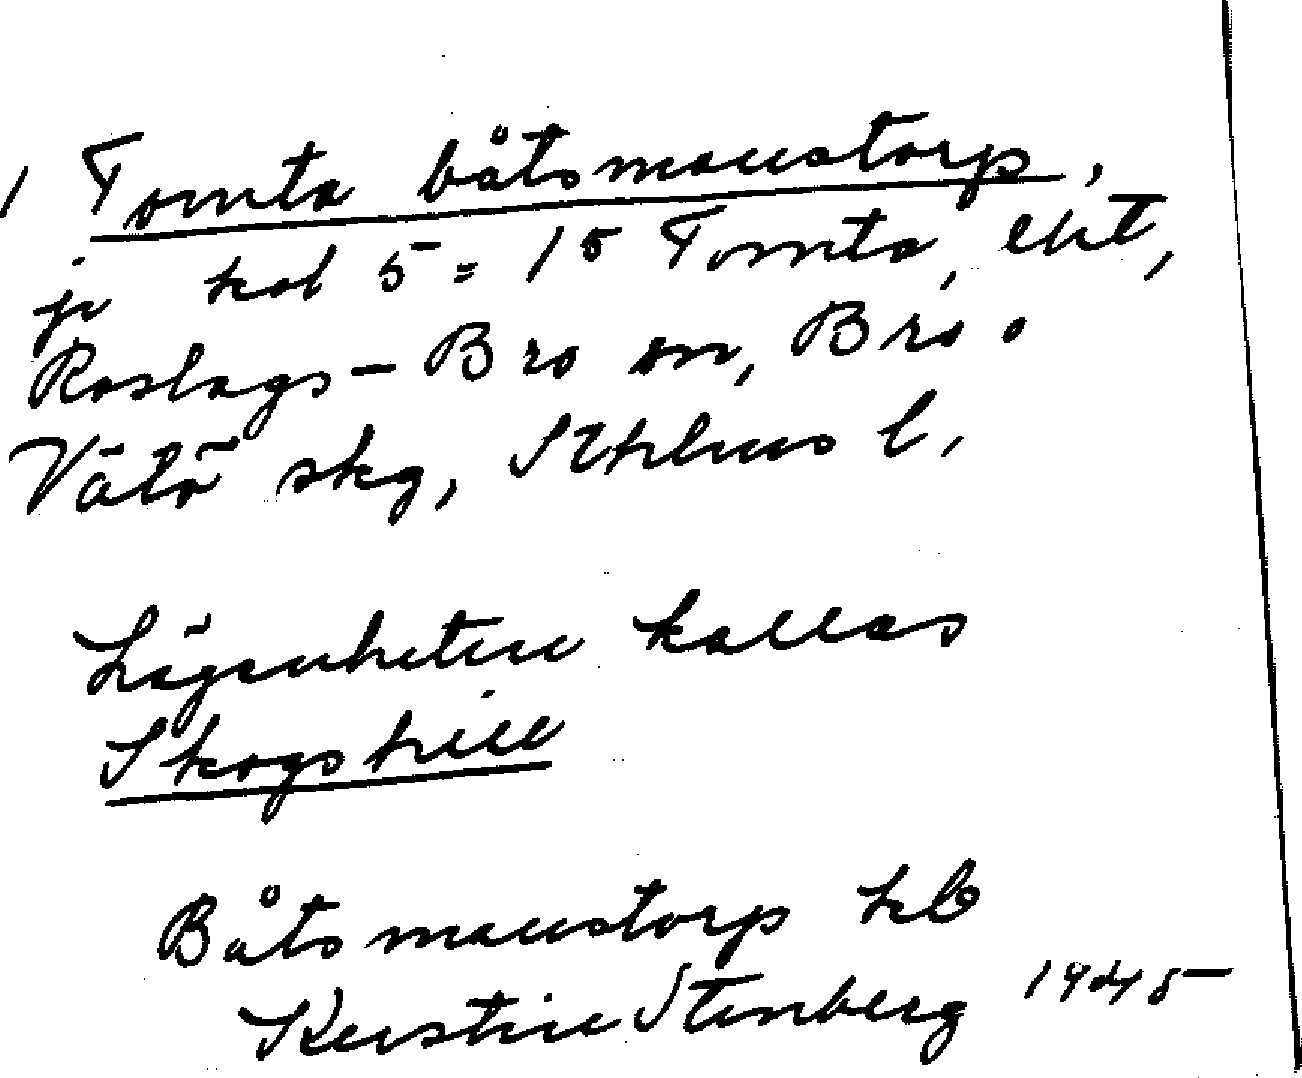 1 Tomta båtsmanstorp,
på kol 5 = 15 Tomta, ekt,
Roslags-Bro sn, Bro o
Vätö skg, Sthlms l.
Lägenheten kallas
Skogshill
Båtsmanstorp hb
Kerstin Stenberg 1945